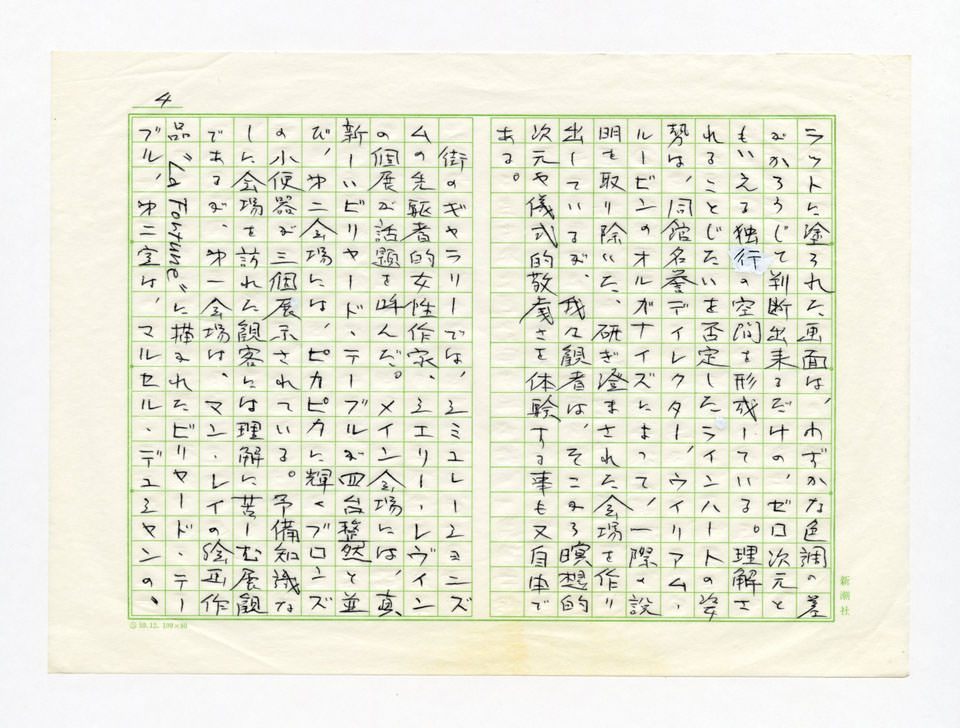 4
ラットに塗られた画面は、わずかな色調の差
がかろうじて判断出来るだけの、ゼロ次元と
もいえる独行の空間を形成している。理解さ
れることじたいを否定したラインハートの姿
勢は、同館名誉ディレクター、ウイリアム・
ルービンのオルガナイズによって、一際々設
明を取り除いた、研ぎ澄まされた会場を作り
出しているが、我々観者は、そこから瞑想的
次元や儀式的敬虔さを体験する事も又自由で
ある。
街のギャラリーでは、シミュレーションズ
ムの先駆者的女性作家、シエリー・レヴィン
の個展が話題を呼んだ。メイン会場には、真
新しいビリヤード・テーブルが四台整然と並
び、第二会場には、ピカピカに輝くブロンズ
の小便器が三個展示されている。予備知識な
しに会場を訪れた観客には理解に苦しむ展観
であるが、第一会場は、マン・レイの絵画作
品“La Fortune”に描かれたビリヤード・テー
ブル、第二室は、マルセル・デュシャンの、
新潮社